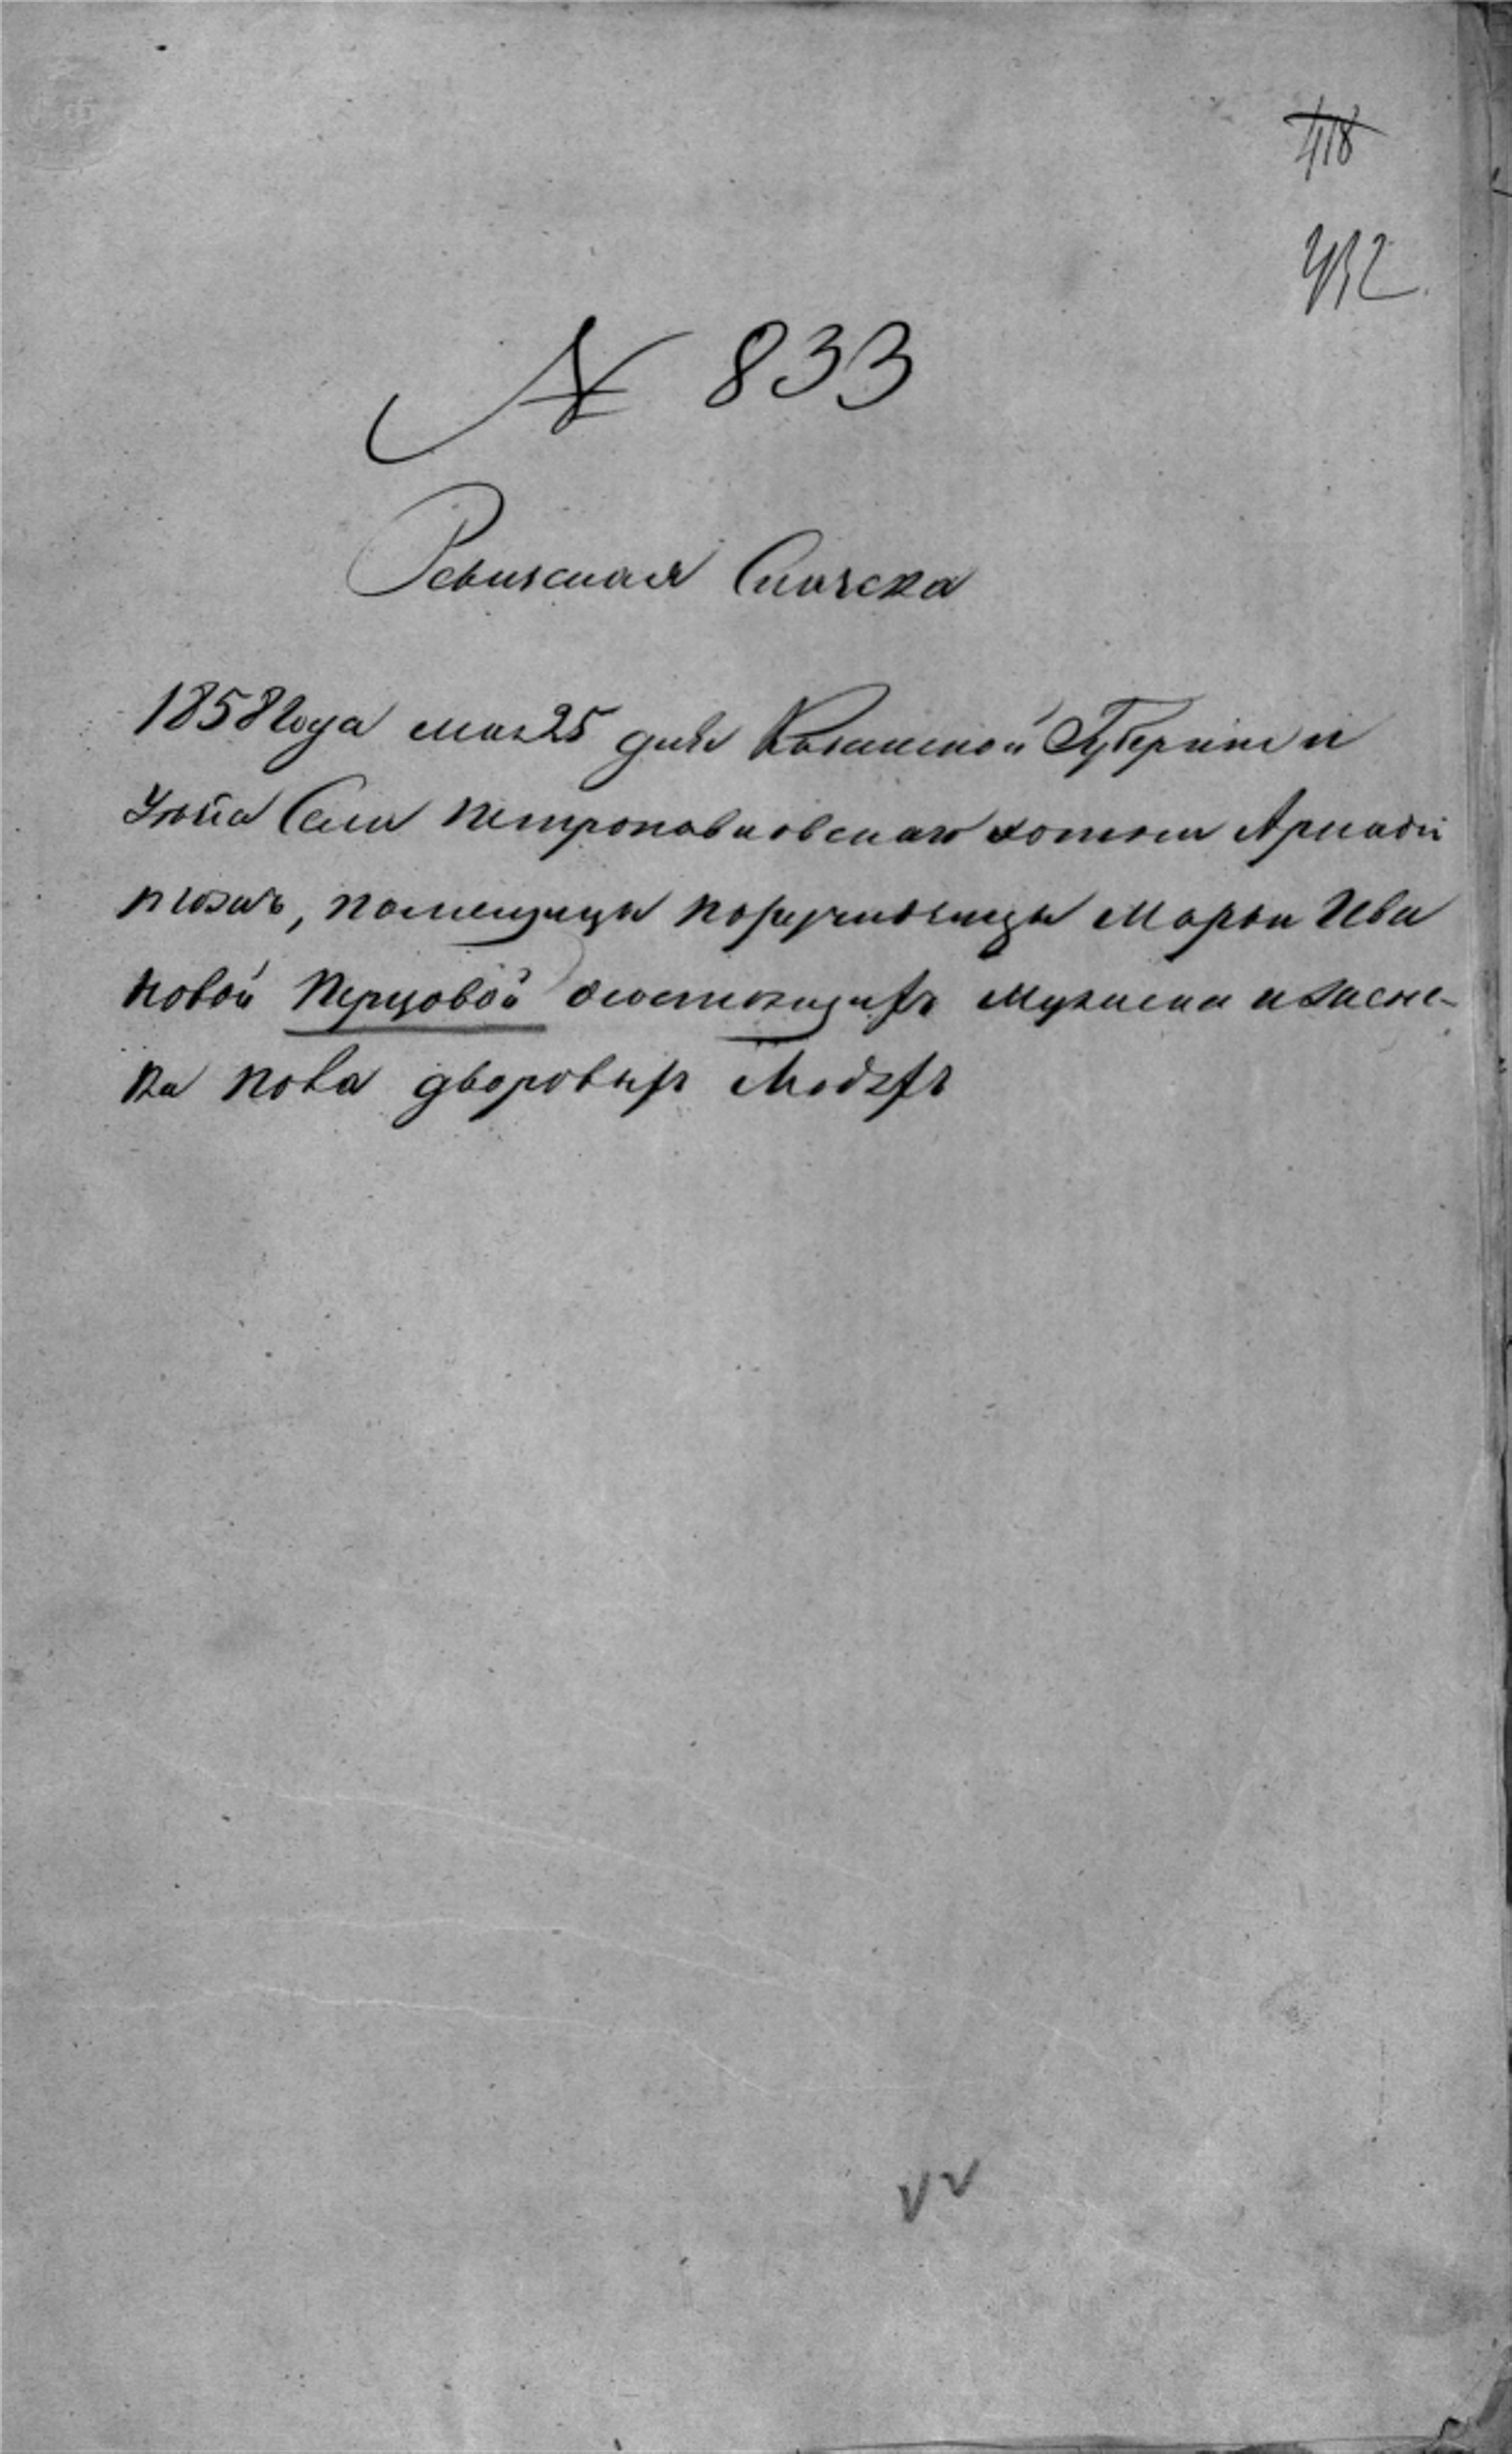 418
432.
№ 833
Ревизская Сказка
1858 года мая 25 дня Казанской Губернии и
Уѣзда Села Петропавловскаго тожъ
тожъ, помещицы порутчицы Марьи Ива
новой Перцовой состоящихъ мужеска и женс-
ка пола дворовыхъ людехъ